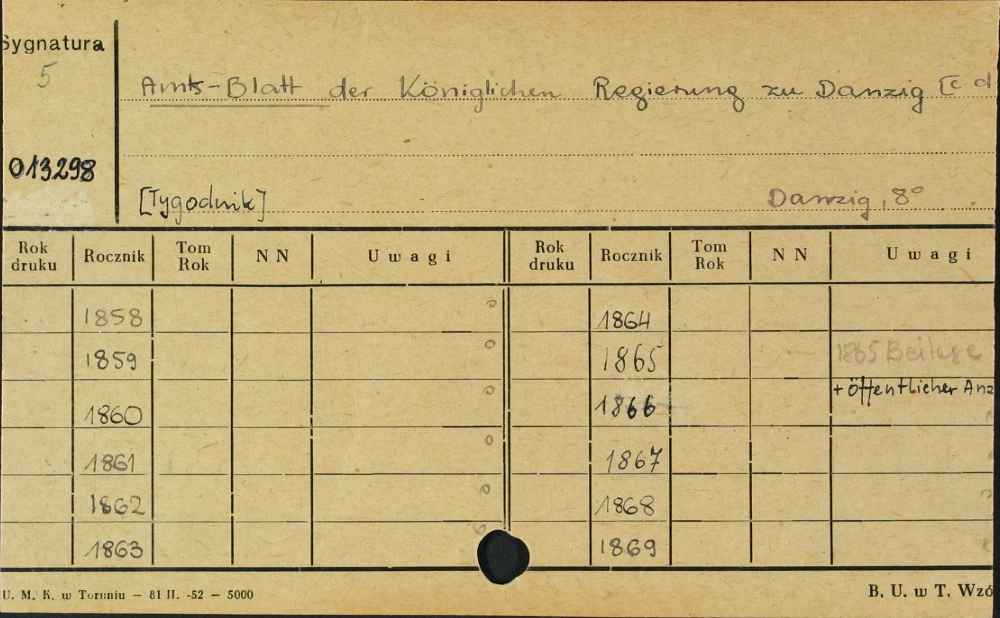 Sygnatura
5
Amts-Blatt der Königlichen Regierung zu Danzig [c d
013298
[Tygodnik] Danzig, 8°
Rok druku Rocznik Tom Rok N N Uwagi Rok druku Rocznik Tom Rok N N Uwagi
1858 1864
1859 1865 1865 Beilage
1860 1866 + öffentlicher Anz
1861 1867
1862 1868
1863 1869
U. M. K. w Toruniu — 81 II. -52 — 5000 B. U. w T. Wzó